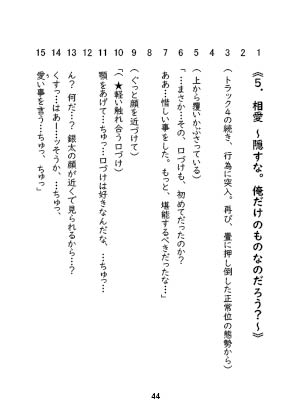 1 《5．相愛 ～隠すな。俺だけのものなのだろう？～》
2
3 （トラック4の続き、行為に突入。再び、畳に押し倒した正常位の態勢から）
4
5 （上から覆いかぶさっている）
6 「…まさか…その、口づけも、初めてだったのか？
7 ああ…惜しい事をした。もっと、堪能するべきだったな…」
8
9 （ぐっと顔を近づけて）
10 「（★軽い触れ合う口づけ）
11 顎をあげて…ちゅっ…口づけは好きなんだな、…ちゅっ…
12
13 ん？ 何だ…？ 銀太の顔が近くで見られるから…？
14 くすっ…はあ…ッそうか、…ちゅっ、
15 愛い事を言う…ちゅっ、ちゅっ」
44